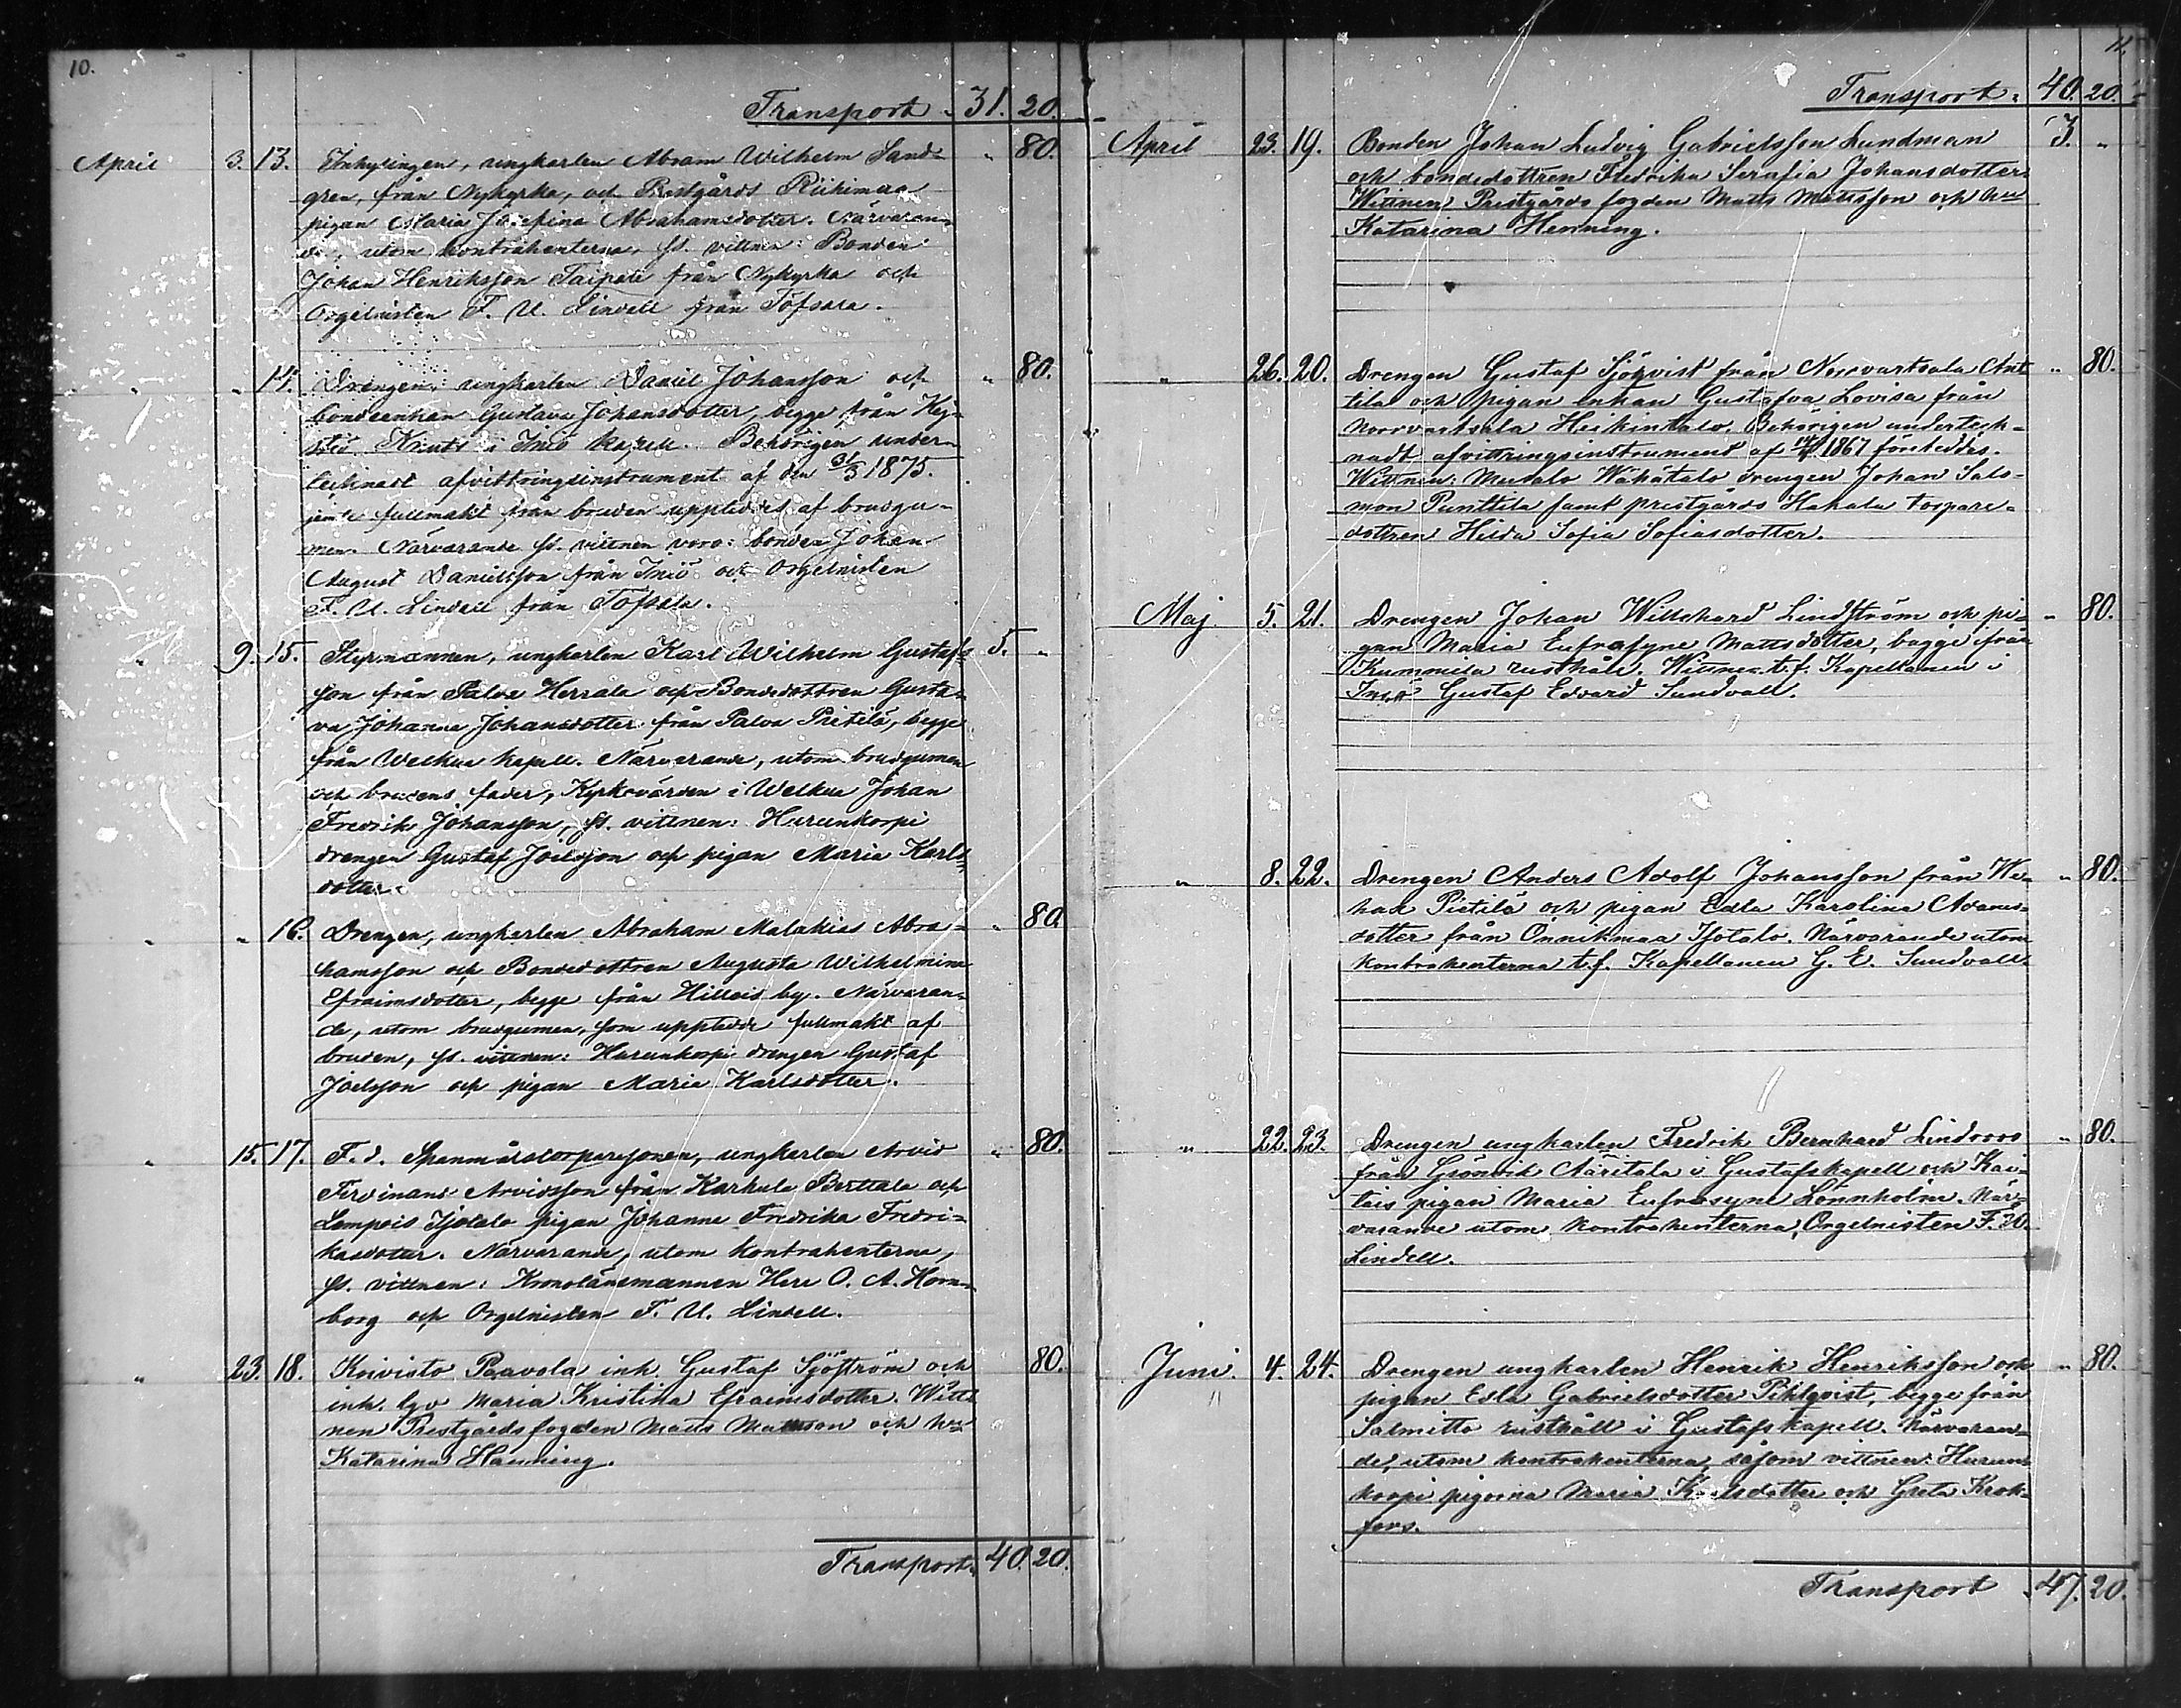 10.
Transport 31. 20.
April 3. 13. Inhysingen, ungkarlen Abram Wilhelm Sand= " 80.
gren, från Nykyrka, och Prestgårds Riihimaa
pigan Maria Josefina Abrahamsdotter. Närvaran=
de, utom kontrahenterna, ss. vittnen: Bonden
Johan Henriksson Taipale från Nykyrka och
Orgelnisten F. U. Lindell från Töfsala.
" " 14. Drengen, ungkarlen Daniel Johansson och " 80.
bondeenkan Gustava Johansdotter, begge från
Knuts i Iniö kapell. Behörigen under=
tecknadt afvittringsinstrument af den 31/3 1875.
jemte fullmakt från bruden uppteddes af brudgu=
men. Närvarande ss. vittnen voro: bonden Johan
August Danielsson från Iniö och Orgelnisten
F. U. Lindell från Töfsala.
" 9. 15. Styrmannen, ungkarlen Karl Wilhelm Gustafs= 5. "
son från Palva Herrala och Bondedottren Gusta=
va Johanna Johansdotter från Palva Pietilä, begge
från Welkua kapell. Närvarande, utom brudgumen
och brudens fader, Kyrkovärden i Welkua Johan
Fredrik Johansson, ss. vittnen: Hurunkorpi
drengen Gustaf Joelsson och pigan Maria Karls=
dotter.
" " 16. Drengen, ungkarlen Abraham Malakias Abra= " 80.
hamsson och Bondedottren Augusta Wilhelmina
Efraimsdotter, begge från Hillois by. Närvaran=
de, utom brudgumen, som upptedde fullmakt af
bruden, ss. vittnen: Hurunkorpi drengen Gustaf
Joelsson och pigan Maria Karlsdotter.
" 15. 17. F. d. Spanmålstorparesonen, ungkarlen Arvid " 80.
Ferdinand Arvidsson från Karhula Berttala och
Lempois Isotalo pigan Johanna Fredrika Fredri=
kasdotter. Närvarande, utom kontrahenterna,
ss. vittnen: Kronolänsmannen Herr O. A. Horn=
borg och Orgelnisten F. U. Lindell.
" 23. 18. Koivisto Paavola inh. Gustaf Sjöström och 80.
inh. Maria Kristina Efraimsdotter. Witt=
nen Prestgårdsfogden Matts Mattsson och
Katarina Henning.
Transport 40. 20.
11.
Transport. 40. 20.
April 23. 19. Bonden Johan Ludvig Gabrielsson Lundman 3. "
och bondedottren Fredrika Serafia Johansdotter.
Wittnen Prestgårds fogden Matts Mattsson och
Katarina Henning.
" 26. 20. Drengen Gustaf Sjöqvist från Norrvartsala Ant " 80.
tila och pigan enkan Gustafva Lovisa från
Norrvartsala Heikintalo. Behörigen underteck=
nadt afvittringsinstrument af 1867 företeddes.
Wittnen: Musalo Wähätalo drengen Johan Salo=
mon Punttila samt prestgårds Hakala torpare=
dottren Hilda Sofia Sofiasdotter.
Maj 5. 21. Drengen Johan Willehard Lindström och pi= " 80.
gan Maria Eufrosyne Mattsdotter, begge från
Kummila rusthåll. Wittnen t.f. Kapellanen i
Iniö Gustaf Edvard Sundvall.
" 8. 22. Drengen Anders Adolf Johansson från We= " 80.
has Pietilä och pigan Edla Karolina Adams=
dotter från Onnikmaa Isotalo. Närvarande utom
kontrahenterna t.f. Kapellanen G. E. Sundvall.
" 22. 23. Drengen ungkarlen Fredrik Bernhard Lindroos " 80.
från Grönvik Näritala i Gustafs kapell och Kai=
tais pigan Maria Eufrosyne Lönnholm. När=
varande utom kontrahenterna, Orgelnisten F. U.
Lindell.
Juni. 4. 24. Drengen ungkarlen Henrik Henriksson och " 80.
pigan Edla Gabrielsdotter Pihlqvist, begge från
Salmitto rusthåll i Gustafs kapell. Närvaran=
de, utom kontrahenterna, såsom vittnen: Hurun=
korpi pigorna Maria Karlsdotter och Greta Krok=
fors.
Transport 47. 20.